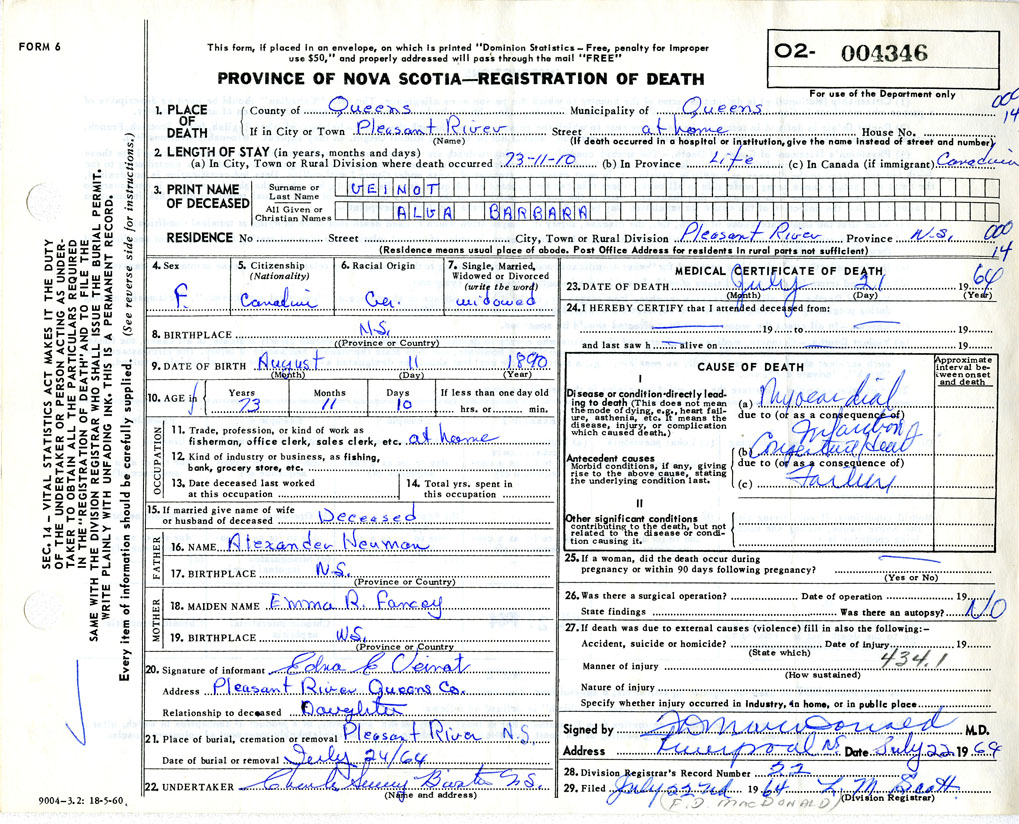 FORM 6
This form, if placed in an envelope, on which is printed "Dominion Statistics – Free, penalty for improper
use $50," and properly addressed will pass through the mail "FREE"
O2- 004346
For use of the Department only
PROVINCE OF NOVA SCOTIA—REGISTRATION OF DEATH
000
14
1. PLACE OF DEATH
County of Queens Municipality of Queens
If in City or Town Pleasant River Street at home House No.
(Name) (If death occurred in a hospital or institution, give the name instead of street and number)
2. LENGTH OF STAY (in years, months and days)
(a) In City, Town or Rural Division where death occurred 73-11-10 (b) In Province Life (c) In Canada (if immigrant) Canadian
3. PRINT NAME OF DECEASED
Surname or Last Name VEINOT
All Given or Christian Names ALVA BARBARA
RESIDENCE No Street City, Town or Rural Division Pleasant River Province N.S.
000
14
(Residence means usual place of abode. Post Office Address for residents in rural parts not sufficient)
4. Sex F.
5. Citizenship (Nationality) Canadian
6. Racial Origin Ger.
7. Single, Married, Widowed or Divorced (write the word) widowed
8. BIRTHPLACE N.S.
((Province or Country)
9. DATE OF BIRTH August 11 1890
(Month) (Day) (Year)
10. AGE in Years 73 Months 11 Days 10 If less than one day old hrs. or min.
OCCUPATION
11. Trade, profession, or kind of work as
fisherman, office clerk, sales clerk, etc. at home
12. Kind of industry or business, as fishing,
bank, grocery store, etc.
13. Date deceased last worked
at this occupation
14. Total yrs. spent in
this occupation
15. If married give name of wife
or husband of deceased Deceased
FATHER
16. NAME Alexander Neuman
17. BIRTHPLACE N.S.
(Province or Country)
MOTHER
18. MAIDEN NAME Emma R. Fancey
19. BIRTHPLACE N.S.
(Province or Country
20. Signature of informant Edna E Veinot
Address Pleasant River Queens Co.
Relationship to deceased Daughter
21. Place of burial, cremation or removal Pleasant River N.S.
Date of burial or removal July 24/64
22. UNDERTAKER N.S.
(Name and address)
MEDICAL CERTIFICATE OF DEATH
23. DATE OF DEATH July 21 1964
(Month) (Day) (Year)
24. I HEREBY CERTIFY that I attended deceased from:
19 to 19
and last saw h alive on 19
CAUSE OF DEATH
Approximate interval between onset and death
I
Disease or condition directly leading to death (This does not mean
the mode of dying, e.g., heart failure, asthenia, etc. It means the
disease, injury, or complication
which caused death.)
(a) Myocardial
due to (or as a consequence of)
Infarction
Antecedent causes
Morbid conditions, if any, giving
rise to the above cause, stating
the underlying condition last.
(b) Congestive Heart
due to (or as a consequence of)
(c) Failure
II
Other significant conditions
contributing to the death, but not
related to the disease or condition causing it.
25. If a woman, did the death occur during
pregnancy or within 90 days following pregnancy?
(Yes or No)
26. Was there a surgical operation? Date of operation 19
State findings Was there an autopsy? NO
27. If death was due to external causes (violence) fill in also the following:–
Accident, suicide or homicide? Date of injury 19
(State which)
434.1
Manner of injury
(How sustained)
Nature of injury
Specify whether injury occurred in industry, in home, or in public place
Signed by F D MacDonald M.D.
Address Liverpool NS Date July 22 1964
28. Division Registrar's Record Number 22
29. Filed July 22nd 1964 L. M. Scott
(F. D. MACDONALD) (Division Registrar)
SEC. 14 – VITAL STATISTICS ACT MAKES IT THE DUTY
OF THE UNDERTAKER OR PERSON ACTING AS UNDERTAKER TO OBTAIN ALL THE PARTICULARS REQUIRED
IN THE "REGISTRATION OF DEATH" AND TO FILE THE
SAME WITH THE DIVISION REGISTRAR WHO SHALL ISSUE THE BURIAL PERMIT.
WRITE PLAINLY WITH UNFADING INK. THIS IS A PERMANENT RECORD.
Every item of information should be carefully supplied. (See reverse side for instructions.)
9004–3.2: 18-5-60